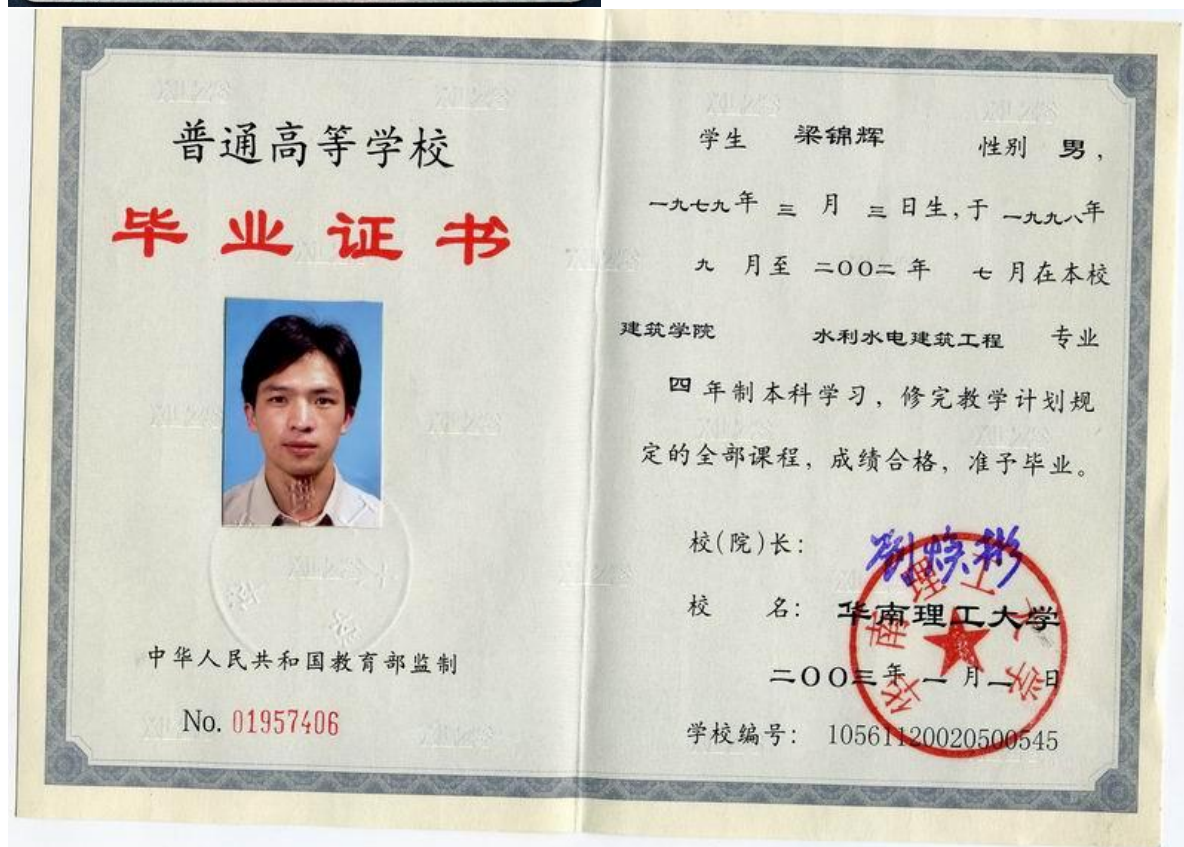 普通高等学校
毕业证书
中华人民共和国教育部监制
No. 01957406
学生 梁锦辉 性别 男，
一九七九年 三 月 三日生，于 一九九八年
九 月至 二〇〇二 年 七 月在本校
建筑学院 水利水电建筑工程 专业
四 年制本科学习，修完教学计划规
定的全部课程，成绩合格，准予毕业。
校（院）长： 刘焕彬
校 名： 华南理工大学
二〇〇三年 一 月 一 日
学校编号： 10561120020500545
华南理工大学